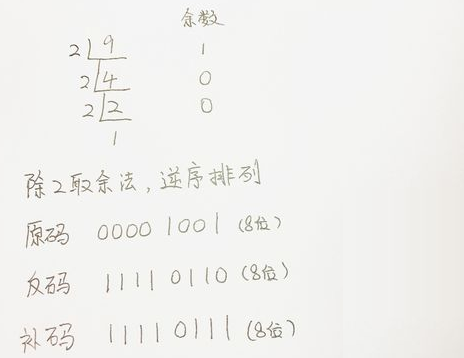 余数
2 9 1
2 4 0
2 2 0
1
除2取余法,逆序排列
原码 0000 1001 (8位)
反码 1111 0110 (8位)
补码 1111 0111 (8位)